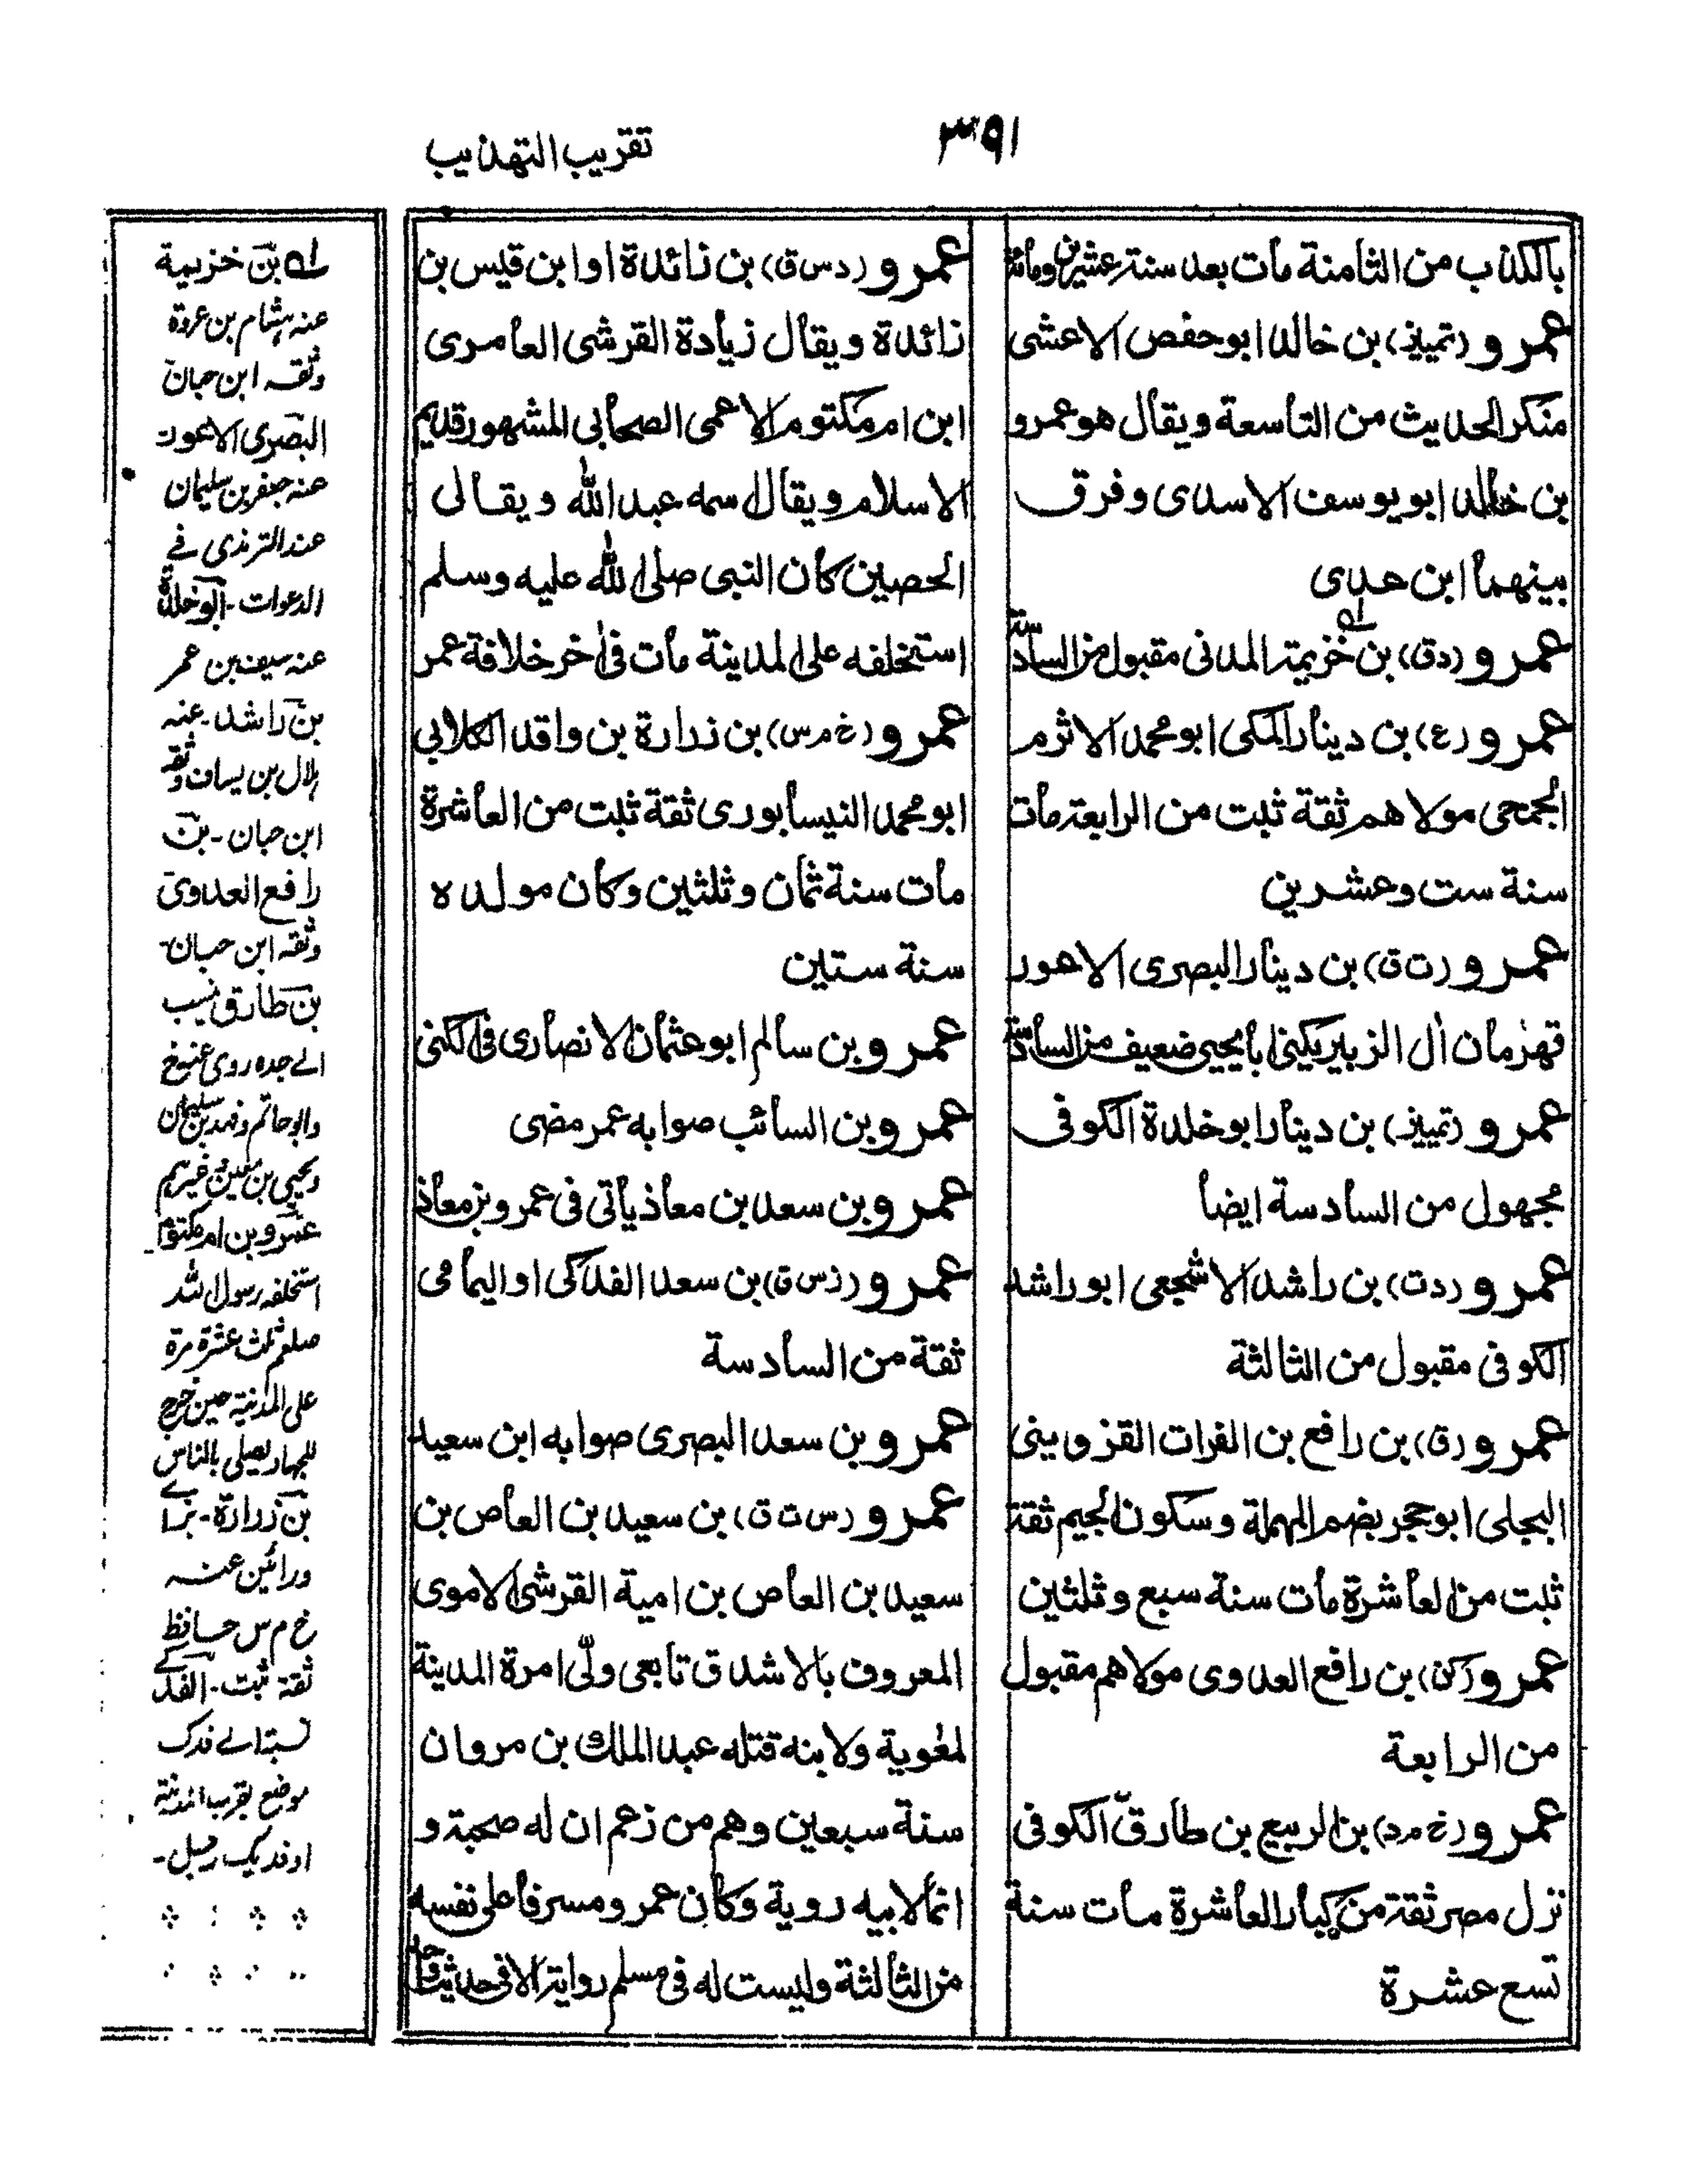 ٣٩١
تقريب التهذيب
بالكذب من الثامنة مات بعد سنة عشرين ومائة
عمرو (تمييز) بن خالد ابو حفص الاعشى
منكر الحديث من التاسعة ويقال هو عمرو
بن خالد ابو يوسف الاسدى وفرق
بينهما ابن عدى
عمرو (دق) بن خزيمة المدنى مقبول من السادسة
عمرو (ع) بن دينار المكى ابو محمد الاثرم
الجمحى مولاهم ثقة ثبت من الرابعة مات
سنة ست وعشرين
عمرو (ت ق) بن دينار البصرى الاعور
قهرمان ال الزبير يكنى ابا يحيى ضعيف من السادسة
عمرو (تمييز) بن دينار ابو خلدة الكوفى
مجهول من السادسة ايضا
عمرو (دت) بن راشد الاشجعى ابو راشد
الكوفى مقبول من الثالثة
عمرو (ق) بن رافع بن الفرات القزوينى
البجلى ابو حجر بضم المهملة وسكون الجيم ثقة
ثبت من العاشرة مات سنة سبع وثلثين
عمرو (كن) بن رافع العدوى مولاهم مقبول
من الرابعة
عمرو (خ مد) بن الربيع بن طارق الكوفى
نزل مصر ثقة من كبار العاشرة مات سنة
تسع عشرة
عمرو (د س ق) بن زائدة او ابن قيس بن
زائدة ويقال زيادة القرشى العامرى
ابن ام مكتوم الاعمى الصحابى المشهور قديم
الاسلام ويقال اسمه عبد الله ويقال
الحصين كان النبى صلى الله عليه وسلم
استخلفه على المدينة مات فى اخر خلافة عمر
عمرو (خ م س) بن زرارة بن واقد الكلابى
ابو محمد النيسابورى ثقة ثبت من العاشرة
مات سنة ثمان وثلثين وكان مولده
سنة ستين
عمرو بن سالم ابو عثمان الانصارى فى الكنى
عمرو بن السائب صوابه عمر مضى
عمرو بن سعد بن معاذ ياتى فى عمرو بن معاذ
عمرو (ز س ق) بن سعد الفدكى او اليمامى
ثقة من السادسة
عمرو بن سعد البصرى صوابه ابن سعيد
عمرو (س ت ق) بن سعيد بن العاص بن
سعيد بن العاص بن امية القرشى الاموى
المعروف بالاشدق تابعى ولّى امرة المدينة
لمعٰوية ولابنه قتله عبد الملك بن مروان
سنة سبعين وهم من زعم ان له صحبة و
انما لابيه روية وكان عمرو مسرفا على نفسه
من الثالثة وليست له فى مسلم رواية الا فى حديث واحد
له بن خزيمة
عنه هشام بن عروة
وثقه ابن حبان
البصرى الاعور
عنه جعفر بن سليمان
عند الترمذى فے
الدعوات - ابو خلدة
عنه سيف بن عمر
بن راشد - عنه
هلال بن يساف وثقه
ابن حبان - بن
رافع العدوى
وثقه ابن حبان
بن طارق نسب
الے جده روى عنه خ
وابو حاتم وفهد بن سليمان
ويحيى بن معين وغيرهم
عمرو بن ام مكتوم
استخلفه رسول الله
صلعم ثلث عشرة مرة
على المدينة حين خرج
للجهاد يصلى بالناس
بن زرارة - بزاے
ورائين عنه
خ م س حافظ
ثقة ثبت - الفدكے
نسبة الے فدك
موضع بقرب المدينة
او فديك رجل -